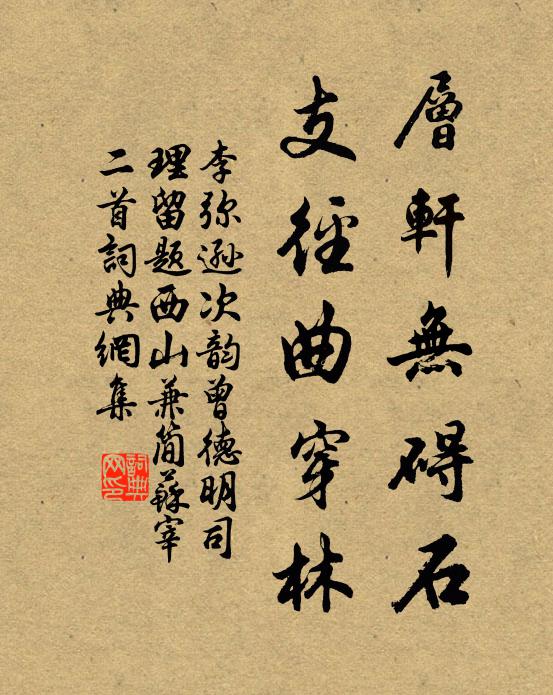 層軒無碍石
支徑曲穿林
李弥遜次韵曾德明司
理留题西山兼简蘇宰
二首詞典網集
詞典网印